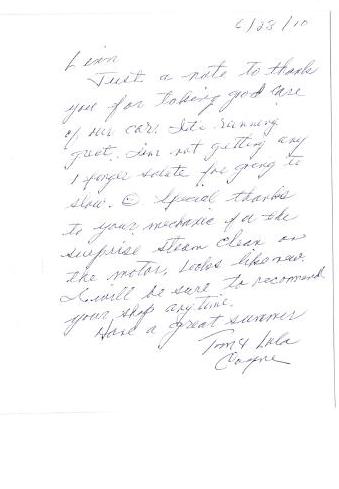 6/23/10
Linn
Just a note to thank
you for taking good care
of our car. Its running
great. im not getting any
1 finger salute for going to
slow. ☺ Special thanks
to your mechanic for the
surprise steam clean on
the motor, looks like new.
I will be sure to recomend
your shop anytime.
Have a great summer
Tom & Lola